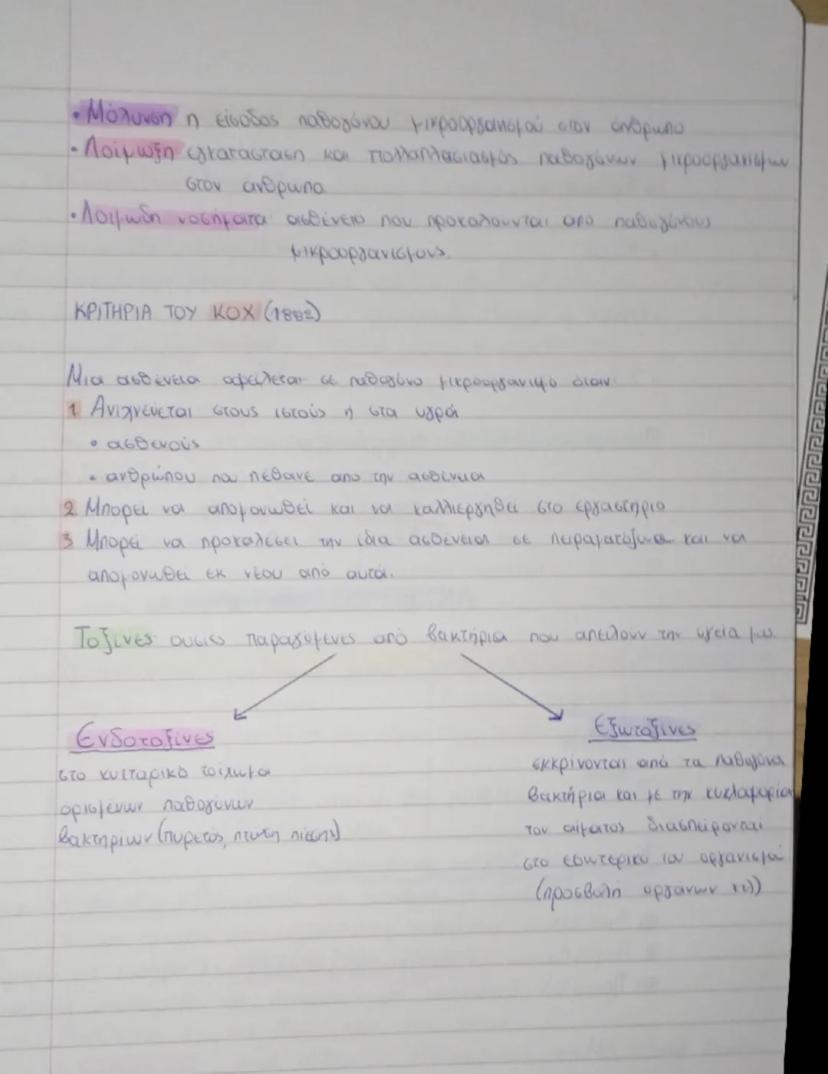 • Μόλυνση η είσοδος παθογόνου μικροοργανισμού στον άνθρωπο
• Λοίμωξη εγκατασταση και πολλαπλασιασμός παθογόνων μικροοργανισμων
στον ανθρωπο
• Λοιμωδη νοσήματα ασθένειες που προκαλουνται απο παθογόνους
μικροοργανισμους.
ΚΡΙΤΗΡΙΑ ΤΟΥ ΚΟΧ (1882)
Μια ασθένεια οφείλεται σε παθογόνο μικροοργανισμό όταν
1 Ανιχνεύεται στους ιστούς ή στα υγρά
• ασθενούς
• ανθρώπου που πέθανε απο την ασθένεια
2 Μπορεί να απομονωθεί και να καλλιεργηθεί στο εργαστήριο
3 Μπορεί να προκαλέσει την ίδια ασθένεια σε πειραματόζωα και να
απομονωθει εκ νέου από αυτά.
Τοξίνες ουσιες παραγομενες από βακτήρια που απειλουν την υγεία μας
Ενδοτοξίνες
στο κυτταρικό τοίχωμα
ορισμένων παθογόνων
βακτηρίων (πυρετός, πτωση πίεσης)
Εξωτοξίνες
εκκρίνονται από τα παθογόνα
βακτήρια και με την κυκλοφορία
του αίματος διασπείρονται
στο εσωτερικο του οργανισμού
(προσβολη οργανων κλ)